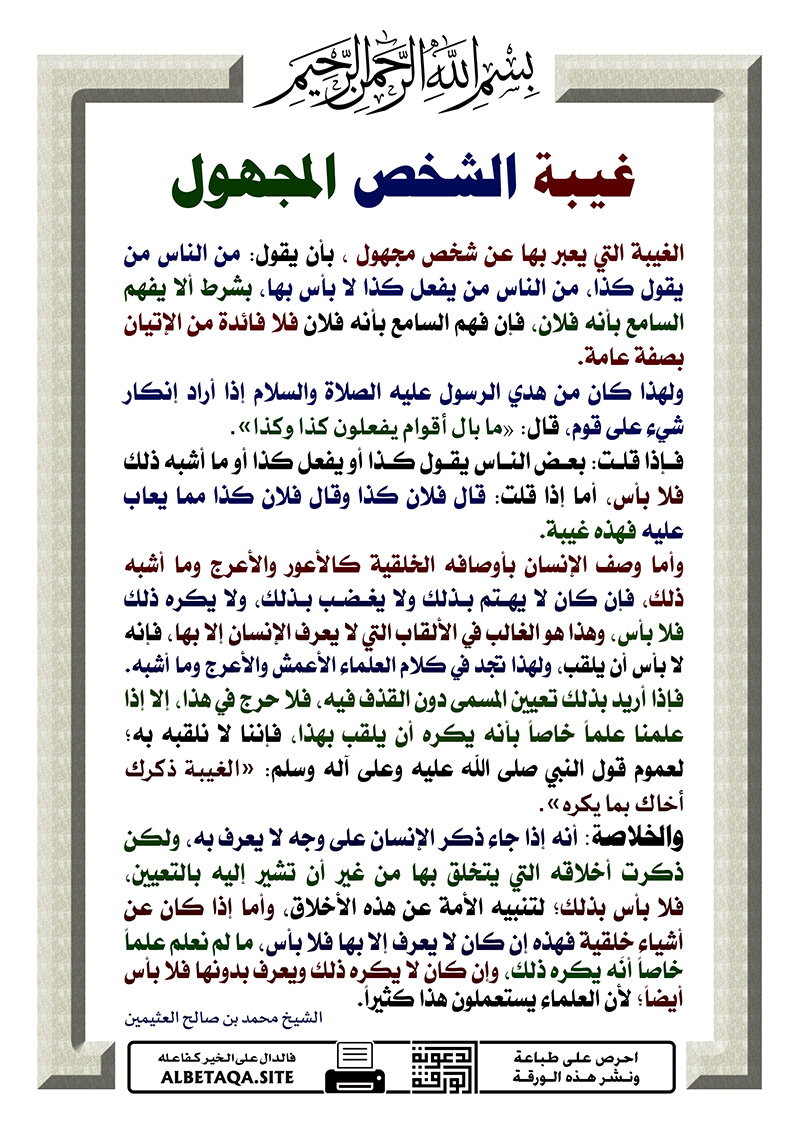 بسم الله الرحمن الرحيم
غيبة الشخص المجهول
الغيبة التي يعبر بها عن شخص مجهول ، بأن يقول: من الناس من
يقول كذا، من الناس من يفعل كذا لا بأس بها، بشرط ألا يفهم
السامع بأنه فلان، فإن فهم السامع بأنه فلان فلا فائدة من الإتيان
بصفة عامة.
ولهذا كان من هدي الرسول عليه الصلاة والسلام إذا أراد إنكار
شيء على قوم، قال: «ما بال أقوام يفعلون كذا وكذا».
فإذا قلت: بعض الناس يقول كذا أو يفعل كذا أو ما أشبه ذلك
فلا بأس، أما إذا قلت: قال فلان كذا وقال فلان كذا مما يعاب
عليه فهذه غيبة.
وأما وصف الإنسان بأوصافه الخلقية كالأعور والأعرج وما أشبه
ذلك، فإن كان لا يهتم بذلك ولا يغضب بذلك، ولا يكره ذلك
فلا بأس، وهذا هو الغالب في الألقاب التي لا يعرف الإنسان إلا بها، فإنه
لا بأس أن يلقب، ولهذا تجد في كلام العلماء الأعمش والأعرج وما أشبه.
فإذا أريد بذلك تعيين المسمى دون القذف فيه، فلا حرج في هذا، إلا إذا
علمنا علماً خاصاً بأنه يكره أن يلقب بهذا، فإننا لا نلقبه به؛
لعموم قول النبي صلى الله عليه وعلى آله وسلم: «الغيبة ذكرك
أخاك بما يكره».
والخلاصة: أنه إذا جاء ذكر الإنسان على وجه لا يعرف به، ولكن
ذكرت أخلاقه التي يتخلق بها من غير أن تشير إليه بالتعيين،
فلا بأس بذلك؛ لتنبيه الأمة عن هذه الأخلاق، وأما إذا كان عن
أشياء خلقية فهذه إن كان لا يعرف إلا بها فلا بأس، ما لم نعلم علماً
خاصاً أنه يكره ذلك، وإن كان لا يكره ذلك ويعرف بدونها فلا بأس
أيضاً؛ لأن العلماء يستعملون هذا كثيراً.
الشيخ محمد بن صالح العثيمين
احرص على طباعة
ونشر هذه الورقة
الورقة الدعوية
فالدال على الخير كفاعله
ALBETAQA.SITE